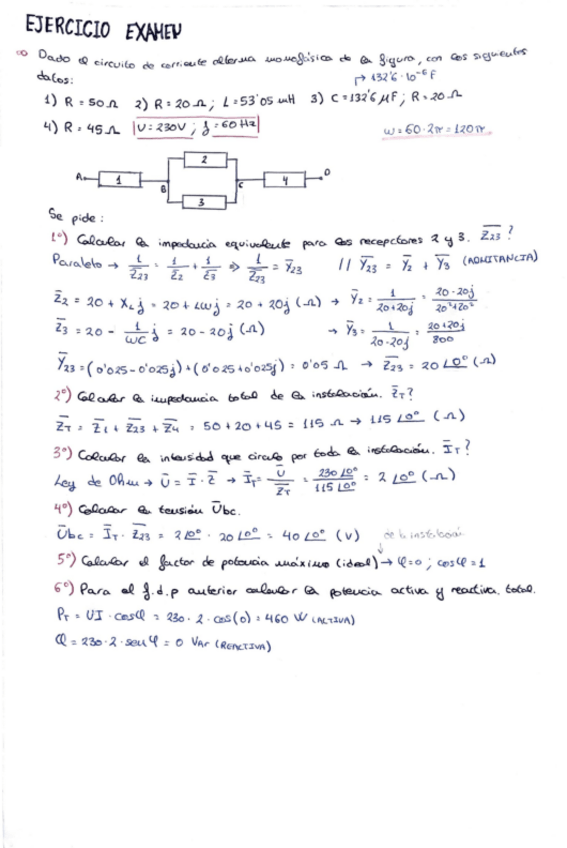 EJERCICIO EXAMEN
Dado el circuito de corriente alterna monofásica de la figura, con los siguientes
datos:
↱ 132'6·10⁻⁶ F
1) R = 50 Ω 2) R = 20 Ω ; L = 53'05 mH 3) C = 132'6 μF ; R = 20 Ω
4) R = 45 Ω U = 230V ; f = 60 Hz
ω = 60·2π = 120π
A 1 B 2 3 C 4 D
Se pide:
1º) Calcular la impedancia equivalente para los receptores 2 y 3. Z̅23?
Paralelo → 1/Z̅23 = 1/Z̅2 + 1/Z̅3 ⇒ 1/Z̅23 = Y̅23 // Y̅23 = Y̅2 + Y̅3 (ADMITANCIA)
Z̅2 = 20 + XL j = 20 + Lω j = 20 + 20j (Ω) → Y̅2 = 1/(20+20j) = (20-20j)/(20²+20²)
Z̅3 = 20 - 1/(ωC) j = 20 - 20j (Ω) → Y̅3 = 1/(20-20j) = (20+20j)/800
Y̅23 = (0'025-0'025j)+(0'025+0'025j) = 0'05 Ω → Z̅23 = 20 ∠0º (Ω)
2º) Calcular la impedancia total de la instalación. Z̅T?
Z̅T = Z̅1 + Z̅23 + Z̅4 = 50 + 20 + 45 = 115 Ω → 115 ∠0º (Ω)
3º) Calcular la intensidad que circula por toda la instalación. I̅T?
Ley de Ohm → U̅ = I̅ · Z̅ → I̅T = U̅/Z̅T = 230 ∠0º/115 ∠0º = 2 ∠0º (Ω)
4º) Calcular la tensión U̅bc.
U̅bc = I̅T · Z̅23 = 2∠0º · 20 ∠0º = 40 ∠0º (V)
de la instalación
5º) Calcular el factor de potencia máximo (ideal) → φ=0 ; cosφ = 1
6º) Para el f.d.p anterior calcular la potencia activa y reactiva total.
PT = UI · cosφ = 230 · 2 · cos(0) = 460 W (ACTIVA)
Q = 230·2·senφ = 0 VAr (REACTIVA)